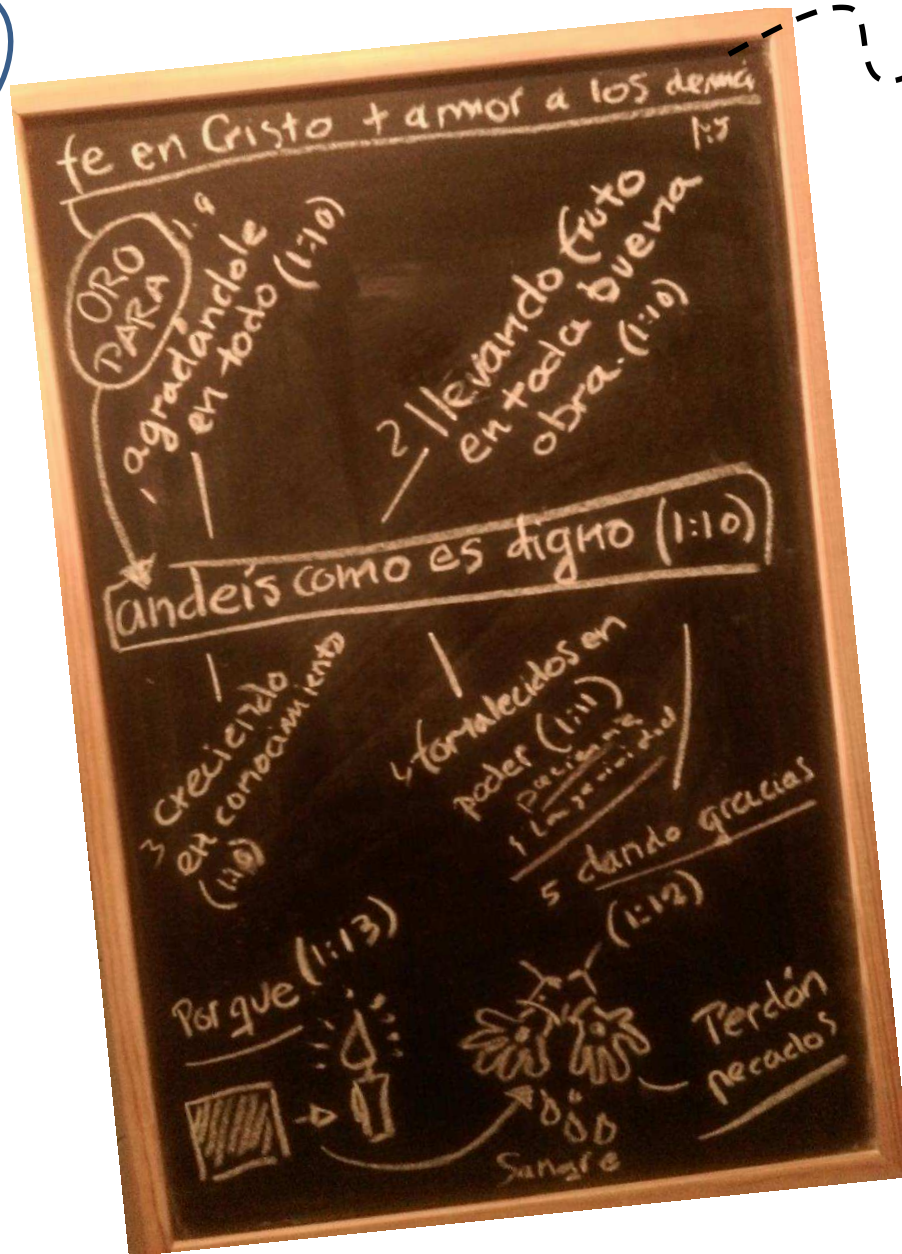 fe en Cristo + amor a los demás
1:5
ORO
PARA
1:9
1 agradándole
en todo (1:10)
2 llevando fruto
en toda buena
obra. (1:10)
andeis como es digno (1:10)
3 creciendo
en conocimiento
(1:10)
4 fortalecidos en
poder (1:11)
paciencia
y longanimidad
5 dando gracias
(1:12)
Porque (1:13)
Perdón
pecados
Sangre